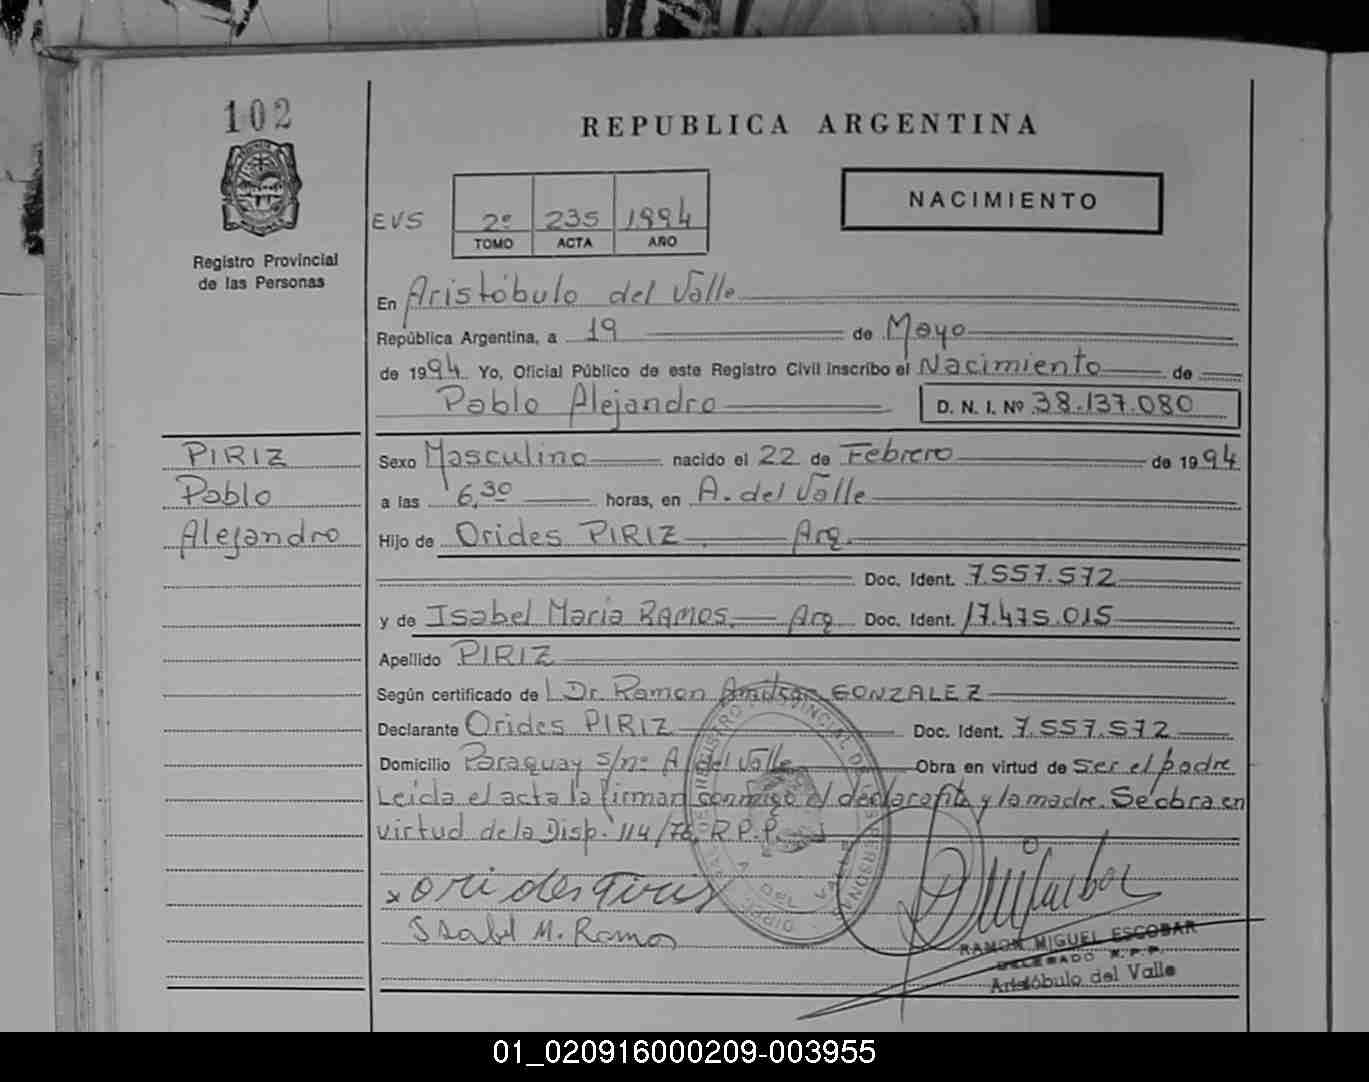 102
REPUBLICA ARGENTINA
NACIMIENTO
EVS 2º 235 1994
TOMO ACTA AÑO
Registro Provincial
de las Personas
En Aristóbulo del Valle
República Argentina, a 19 de Mayo
de 1994 Yo, Oficial Público de este Registro Civil inscribo el Nacimiento de
Pablo Alejandro D. N. I. Nº 38.137.080
PIRIZ
Pablo
Alejandro
Sexo Masculino nacido el 22 de Febrero de 1994
a las 6,30 horas, en A. del Valle
Hijo de Orides PIRIZ Arg.
Doc. Ident. 7.557.572
y de Isabel Maria RAMOS. Arg. Doc. Ident. 17.475.015
Apellido PIRIZ
Según certificado de Dr. Ramon GONZALEZ
Declarante Orides PIRIZ Doc. Ident. 7.557.572
Domicilio Paraguay s/nº A. del Valle Obra en virtud de ser el padre
Leida el acta la firman conmigo el declarante y la madre. Se obra en
virtud de la Disp. 114/76 R.P.P.
REGISTRO PROVINCIAL DE LAS PERSONAS
A. DEL VALLE
x orides Piris
Isabel M. Ramos
RAMON MIGUEL ESCOBAR
DELEGADO R.P.P.
Aristóbulo del Valle
01_020916000209-003955